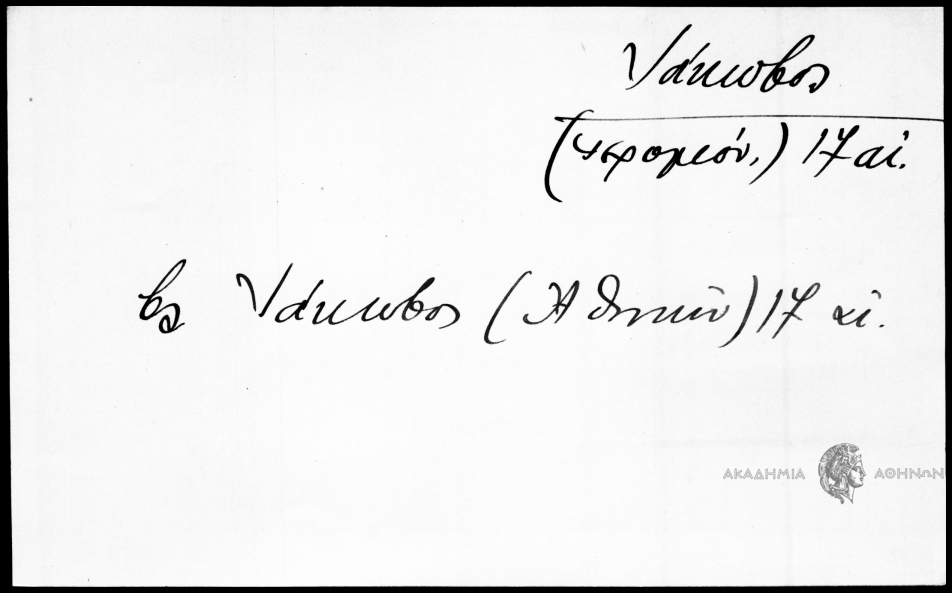 Ἰάκωβος
(ἱερομόν.) 17 αἰ.
βλ Ἰάκωβος (Ἀθηνῶν) 17 αἰ.
ΑΚΑΔΗΜΙΑ ΑΘΗΝΩΝ